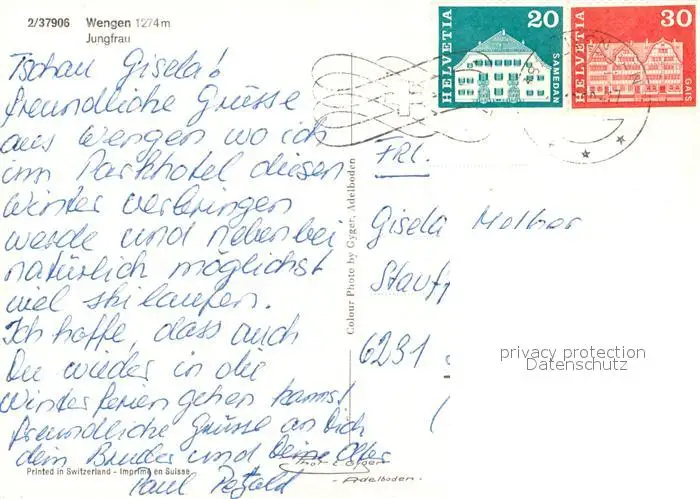 2/37906 Wengen 1274m
Jungfrau
HELVETIA 20 SAMEDAN
HELVETIA 30 GAIS
Tschau Gisela!
freundliche Grüsse
aus Wengen wo ich
im Parkhotel diesen
Winter verbringen
werde und nebenbei
natürlich möglichst
viel skilaufen.
Ich hoffe, dass auch
Du wieder in die
Winterferien gehen kannst
freundliche Grüsse an Dich
dein Bruder und Deine
Paul Petzold
Colour Photo by Gyger, Adelboden
FRL.
Gisela
6231
privacy protection
Datenschutz
Printed in Switzerland - Imprimé en Suisse
Gyger
- Adelboden.